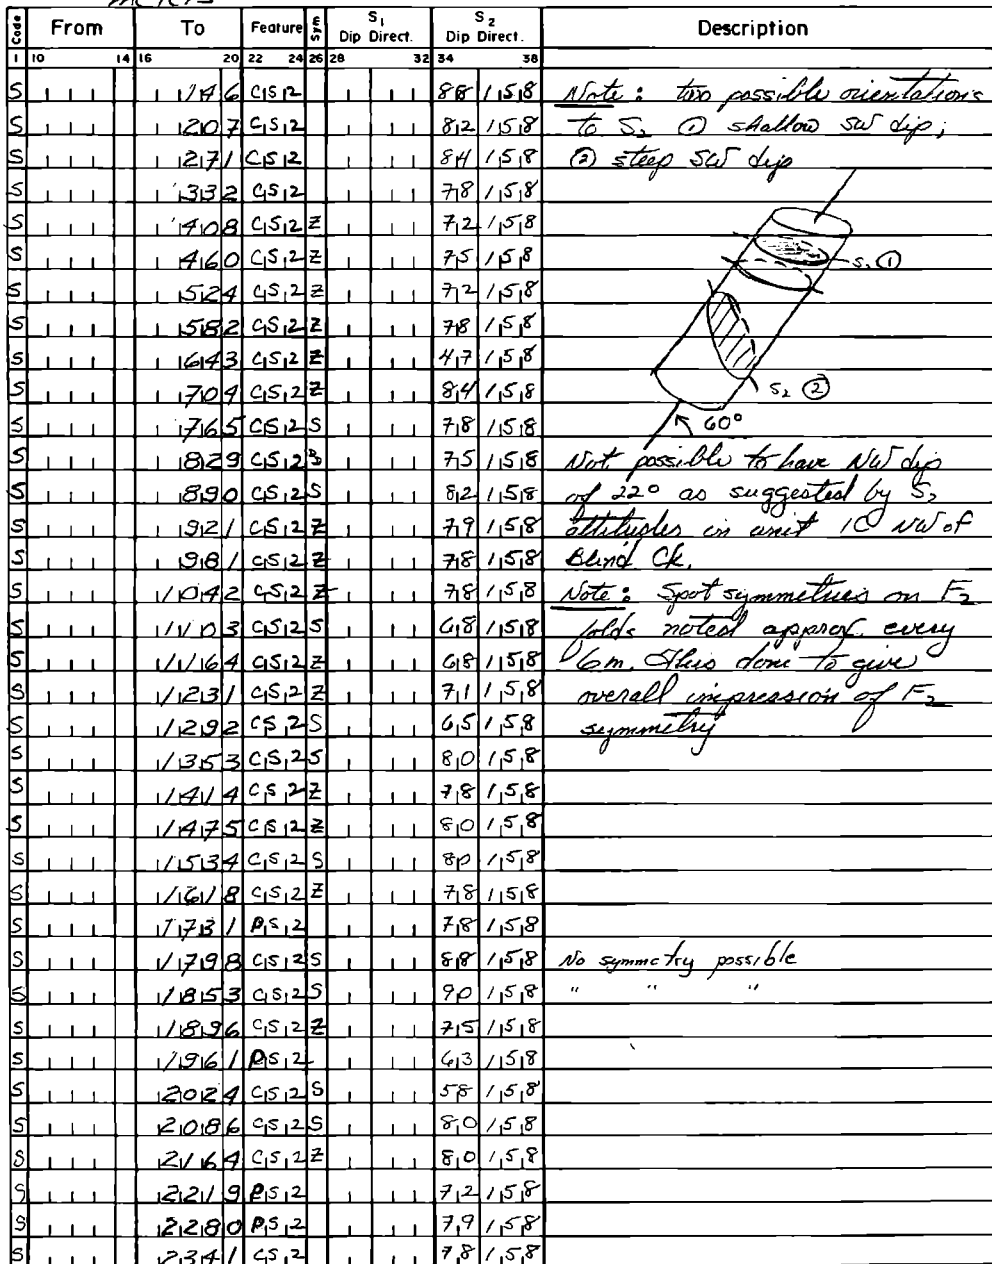 meters
Code From To Feature Sym S1 Dip Direct. S2 Dip Direct. Description
1 10 14 16 20 22 24 26 28 32 34 38
S 146 CS2 88 158 Note: two possible orientations
S 207 CS2 82 158 to S2 ① shallow SW dip;
S 271 CS2 84 158 ② steep SW dip
S 332 CS2 78 158
S 408 CS2 Z 72 158
S 460 CS2 Z 75 158 S2 ①
S 524 CS2 Z 72 158
S 582 CS2 Z 78 158
S 643 CS2 Z 47 158
S 704 CS2 Z 84 158 S2 ②
S 765 CS2 S 78 158 60°
S 829 CS2 S 75 158 Not possible to have NW dip
S 890 CS2 S 82 158 of 22° as suggested by S2
S 921 CS2 Z 79 158 attitudes in unit 10 NW of
S 981 CS2 Z 78 158 Blind Ck.
S 1042 CS2 Z 78 158 Note: Spot symmetries on F2
S 1103 CS2 S 68 158 folds noted approx. every
S 1164 CS2 Z 68 158 6m. This done to give
S 1231 CS2 Z 71 158 overall impression of F2
S 1292 CS2 S 65 158 symmetry
S 1353 CS2 S 80 158
S 1414 CS2 Z 78 158
S 1475 CS2 Z 80 158
S 1534 CS2 S 80 158
S 1618 CS2 Z 78 158
S 1731 PS2 78 158
S 1798 CS2 S 88 158 No symmetry possible
S 1853 CS2 S 90 158 " " "
S 1896 CS2 Z 75 158
S 1961 PS2 63 158
S 2024 CS2 S 58 158
S 2086 CS2 S 80 158
S 2164 CS2 Z 80 158
S 2219 PS2 72 158
S 2280 PS2 79 158
S 2341 CS2 78 158